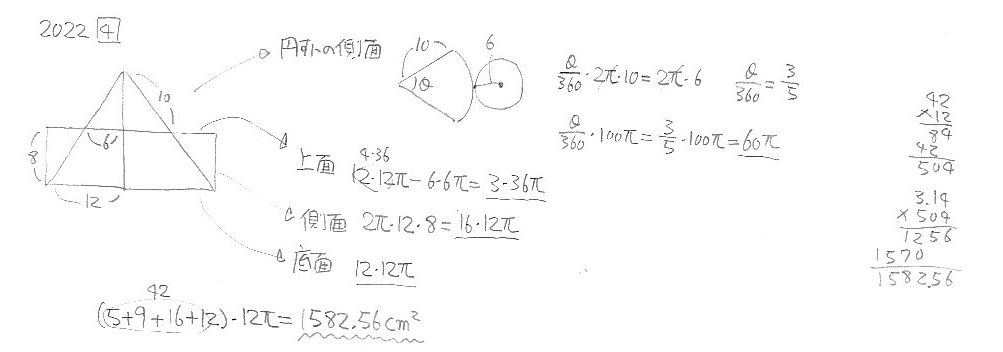 2022 4
円すいの側面
10
θ
6
θ/360・2π・10=2π・6
θ/360=3/5
θ/360・100π=3/5・100π=60π
10
8
6
12
上面
4・36
12・12π-6・6π=3・36π
側面 2π・12・8=16・12π
底面 12・12π
42
(5+9+16+12)・12π=1582.56cm²
42
×12
84
42
504
3.14
×504
1256
1570
1582.56